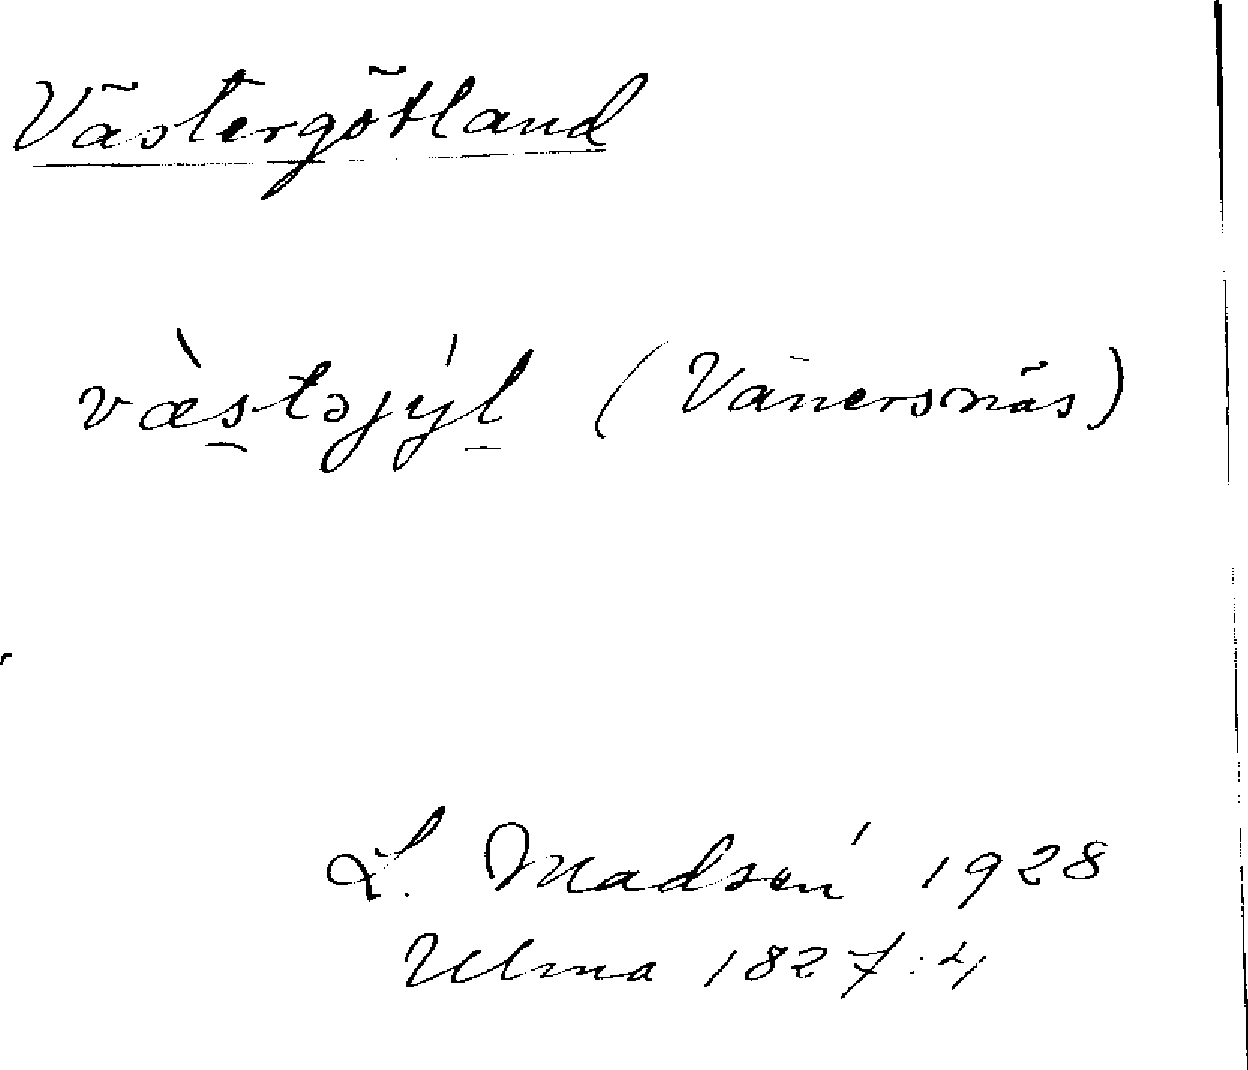 Västergötland
væ̀stəjýl (Vänersnäs)
L. Madsén 1928
Ulma 1827:4